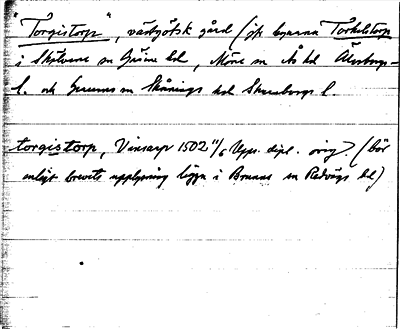 "Torgistorp", västgötsk gård (jfr byarna Torkelstorp
i Skölvene sn Gäsene hd, Möne sn Ås hd Älvsborgs-
l. och Gerums sn Skånings hd Skaraborgs l.
torgistorp, Vinsarp 1502 11/6 Upps. dipl. orig. (bör
enligt brevets upplysning ligga i Brunns sn Redvägs hd)